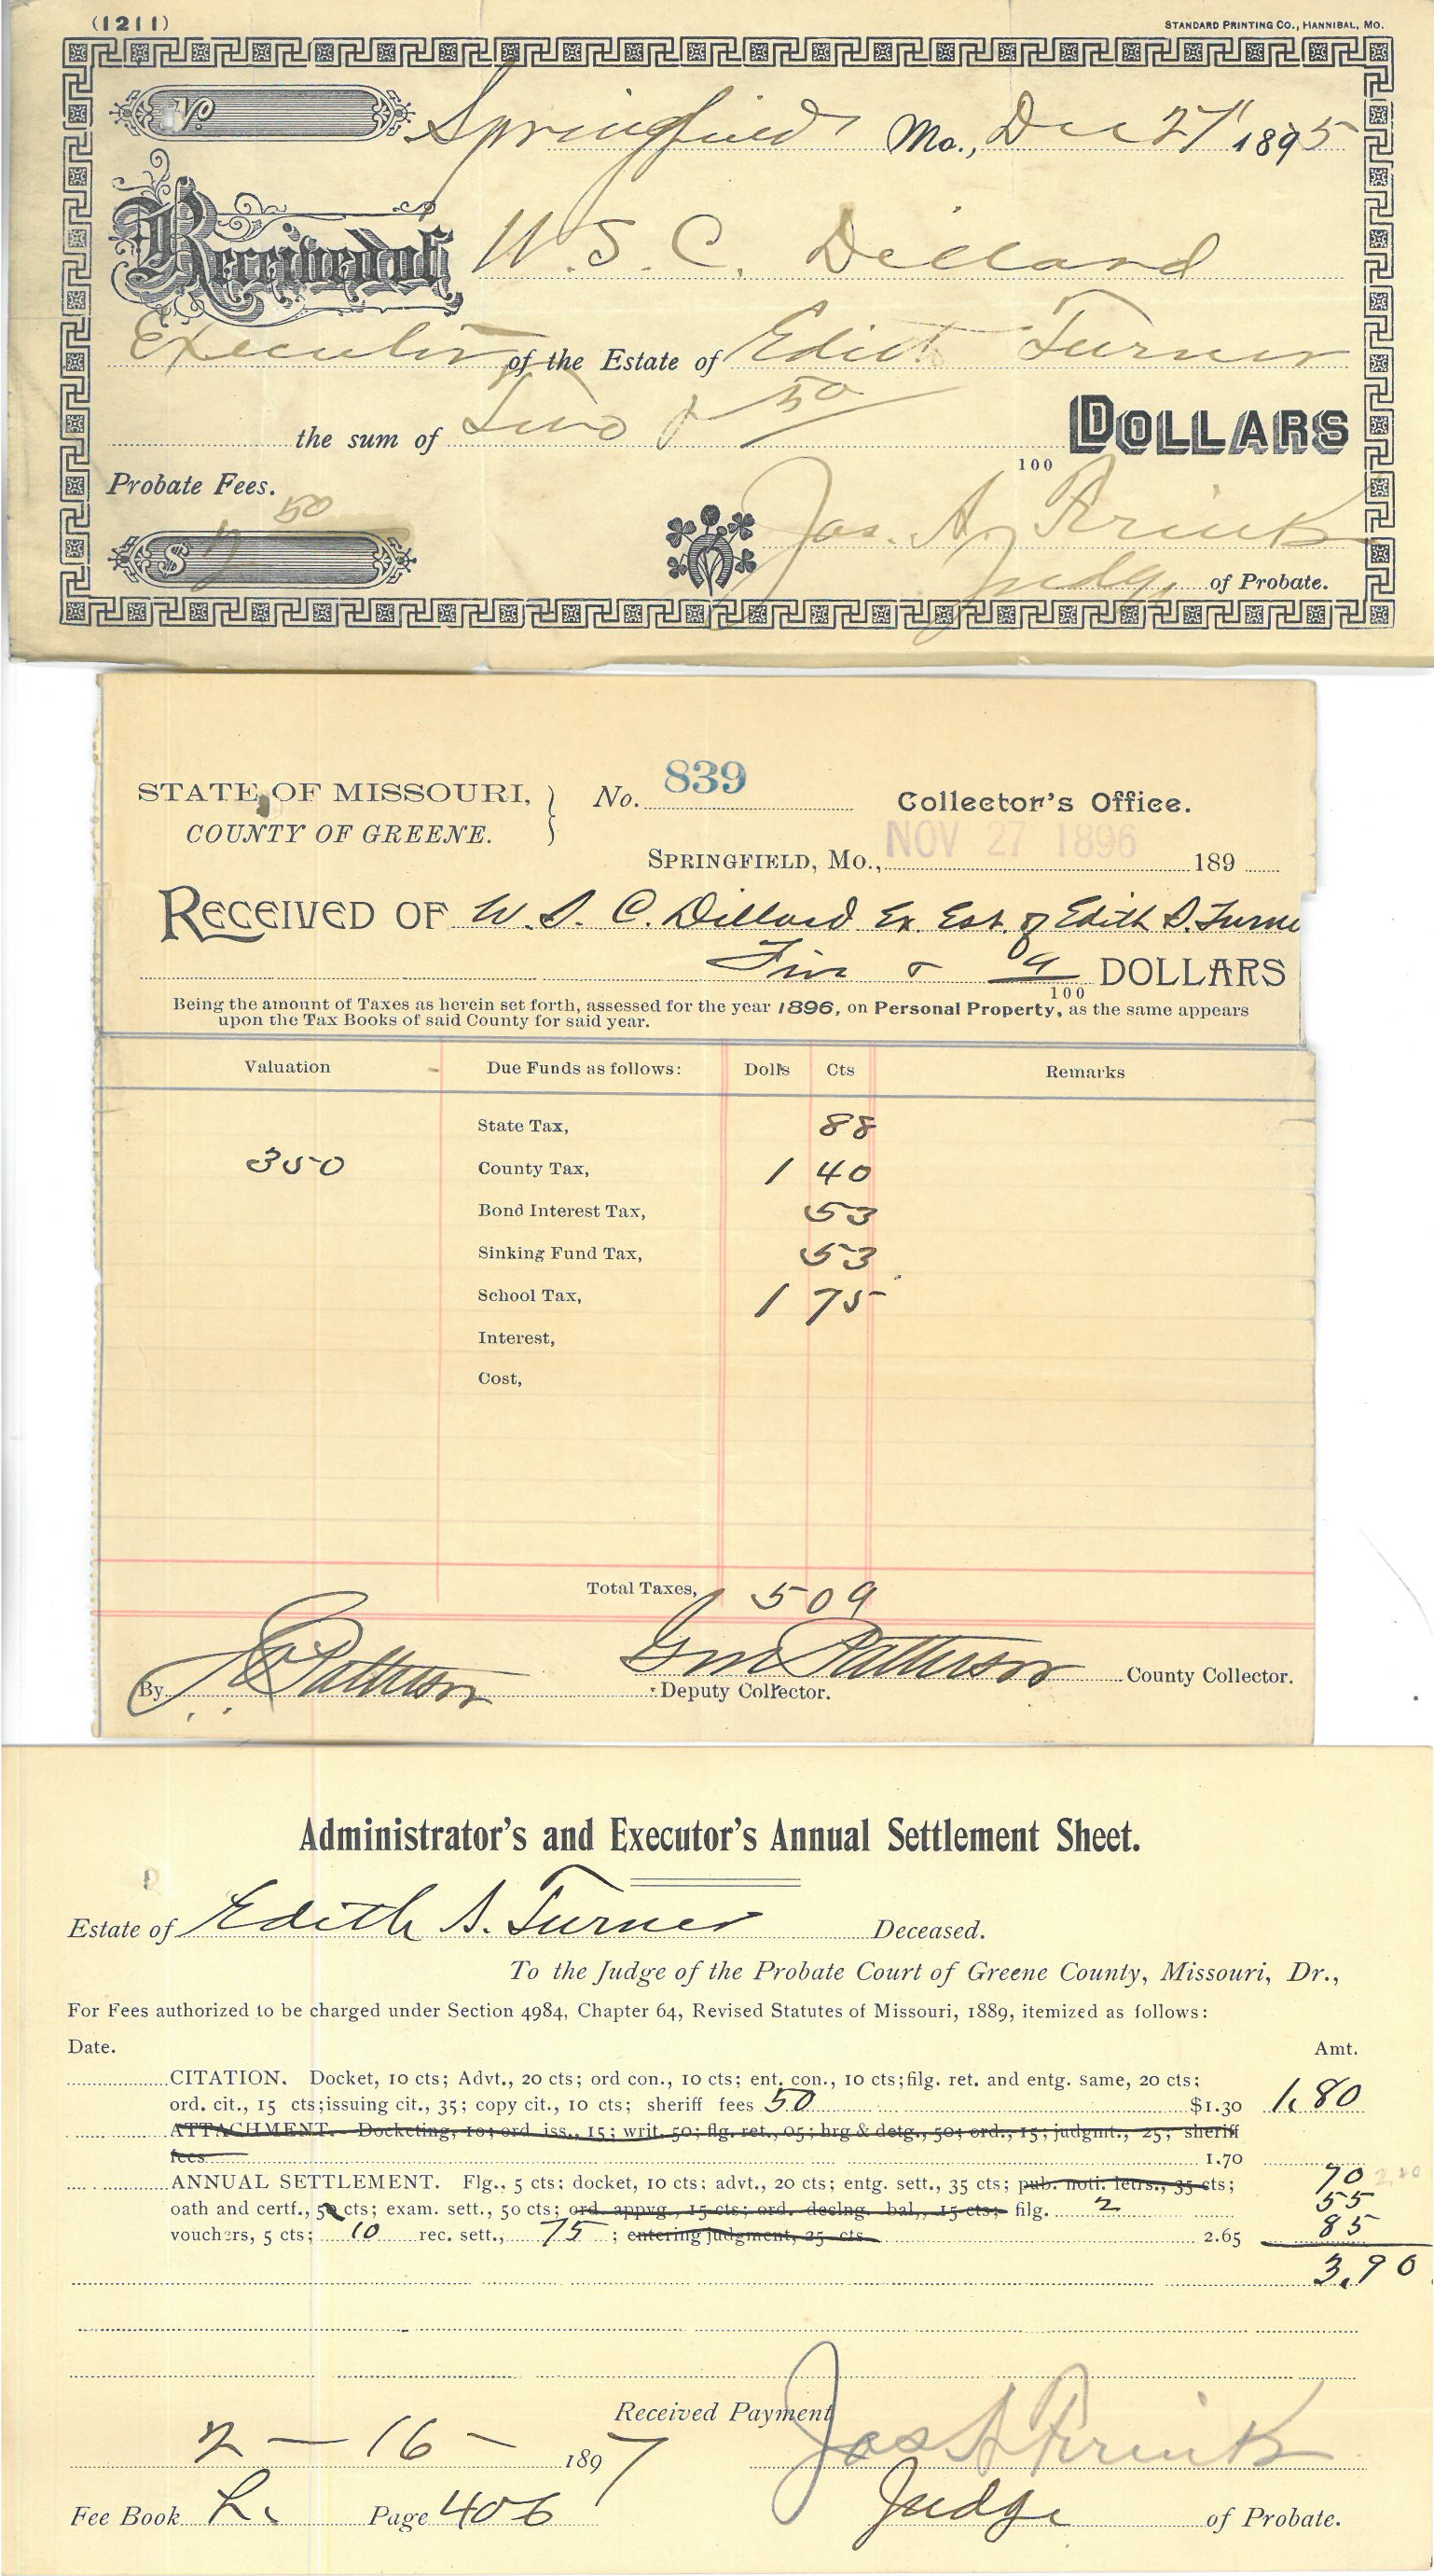 (1211)
STANDARD PRINTING CO., HANNIBAL, MO.
No.
Springfield Mo., Dec 27 1895
Received of W. S. C. Dillard
Executor of the Estate of Edith Turner
the sum of Two & 50/100 DOLLARS
Probate Fees.
$ 2 50
Jos. A. Frink
Judge of Probate.
STATE OF MISSOURI, } No. 839 Collector's Office.
COUNTY OF GREENE.
SPRINGFIELD, MO., NOV 27 1896 189
RECEIVED OF W. S. C. Dillard Ex. Est. of Edith S. Turne
Five & 9/100 DOLLARS
Being the amount of Taxes as herein set forth, assessed for the year 1896, on Personal Property, as the same appears
upon the Tax Books of said County for said year.
Valuation Due Funds as follows: Dolls Cts Remarks
State Tax, 88
350 County Tax, 1 40
Bond Interest Tax, 53
Sinking Fund Tax, 53
School Tax, 1 75
Interest,
Cost,
Total Taxes, 5 09
Patterson County Collector.
By Patterson Deputy Collector.
Administrator's and Executor's Annual Settlement Sheet.
Estate of Edith S. Turner Deceased.
To the Judge of the Probate Court of Greene County, Missouri, Dr.,
For Fees authorized to be charged under Section 4984, Chapter 64, Revised Statutes of Missouri, 1889, itemized as follows:
Date. Amt.
CITATION. Docket, 10 cts; Advt., 20 cts; ord con., 10 cts; ent. con., 10 cts;filg. ret. and entg. same, 20 cts;
ord. cit., 15 cts;issuing cit., 35; copy cit., 10 cts; sheriff fees 50 $1.30 1.80
ATTACHMENT. Docketing, 10; ord. iss., 15; writ. 50; flg. ret., 05; hrg & detg., 50; ord., 15; judgmt., 25; sheriff
fees 1.70
ANNUAL SETTLEMENT. Flg., 5 cts; docket, 10 cts; advt., 20 cts; entg. sett., 35 cts; pub. noti. letrs., 35 cts; 70
oath and certf., 5 cts; exam. sett., 50 cts; ord. appvg., 15 cts; ord. declng. bal., 15 cts; filg. 2 55
vouchers, 5 cts; 10 rec. sett., 75 ; entering judgment, 25 cts. 2.65 85
3.90
Received Payment
2 - 16 - 1897 Jos A Frink
Fee Book L. Page 406 Judge of Probate.